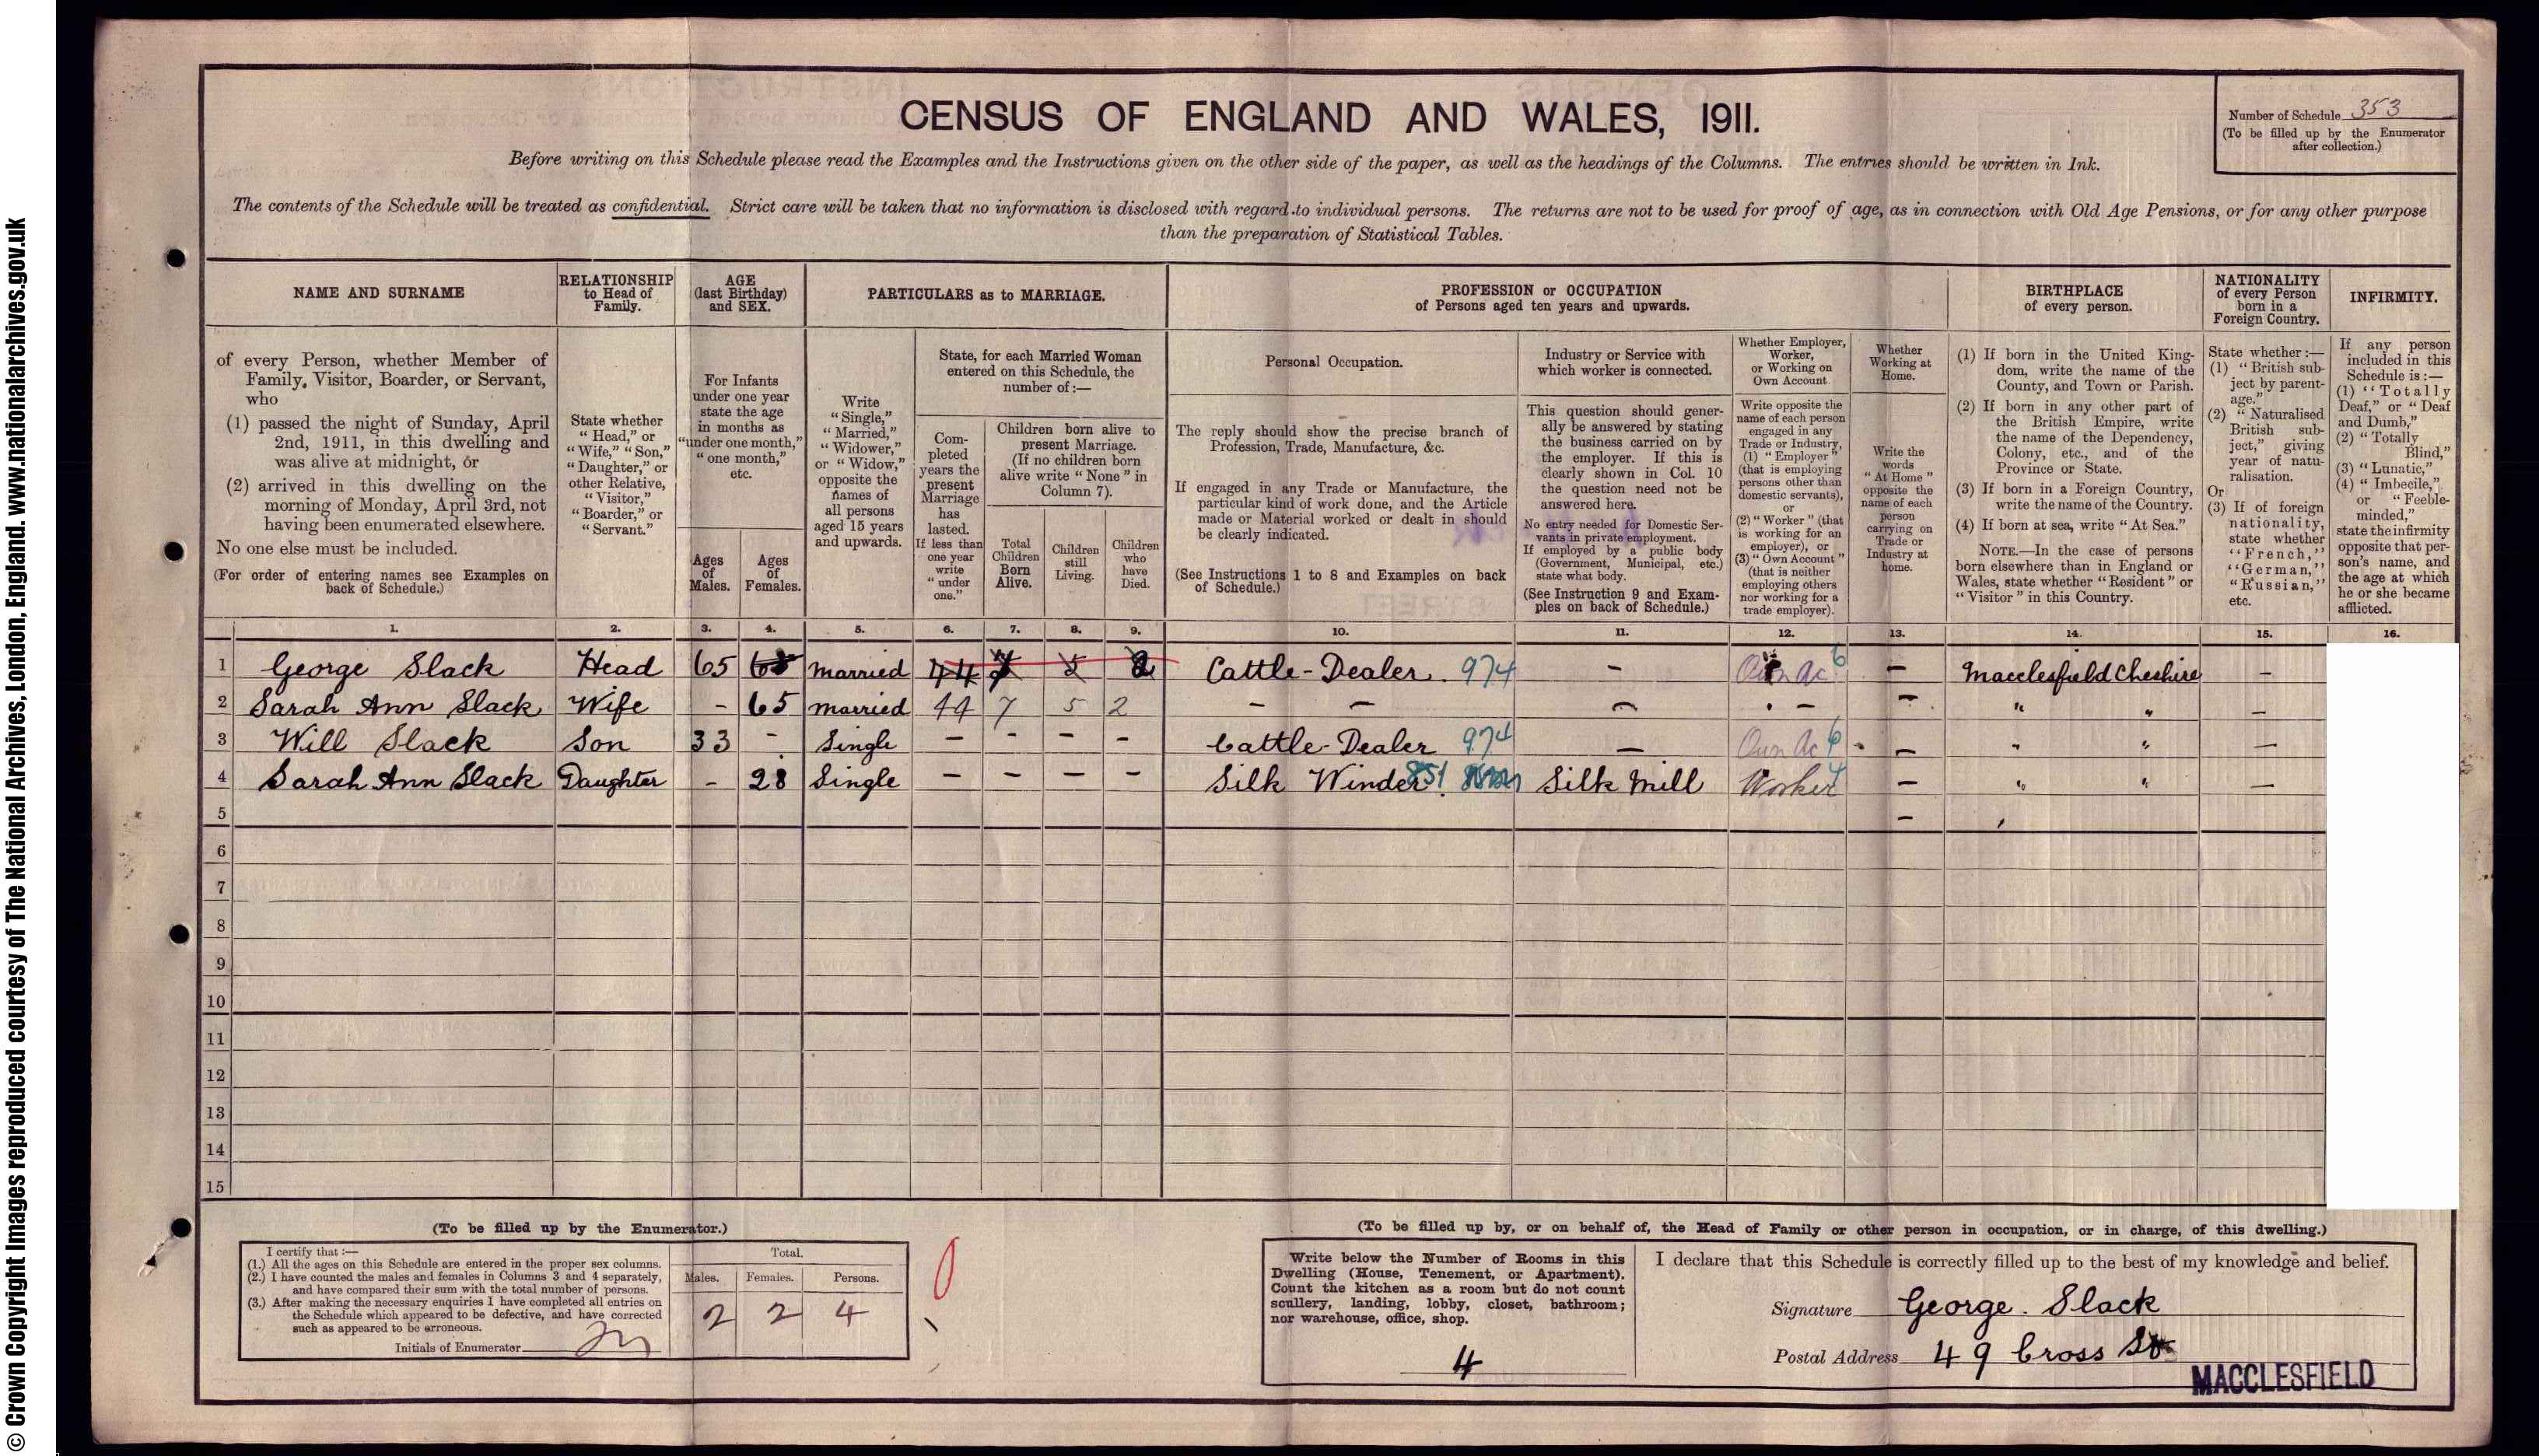 © Crown Copyright Images reproduced courtesy of The National Archives, London, England. www.nationalarchives.gov.uk
CENSUS OF ENGLAND AND WALES, 1911.
Number of Schedule 353
(To be filled up by the Enumerator
after collection.)
Before writing on this Schedule please read the Examples and the Instructions given on the other side of the paper, as well as the headings of the Columns. The entries should be written in Ink.
The contents of the Schedule will be treated as confidential. Strict care will be taken that no information is disclosed with regard to individual persons. The returns are not to be used for proof of age, as in connection with Old Age Pensions, or for any other purpose
than the preparation of Statistical Tables.
NAME AND SURNAME
of every Person, whether Member of
Family, Visitor, Boarder, or Servant,
who
(1) passed the night of Sunday, April
2nd, 1911, in this dwelling and
was alive at midnight, or
(2) arrived in this dwelling on the
morning of Monday, April 3rd, not
having been enumerated elsewhere.
No one else must be included.
(For order of entering names see Examples on
back of Schedule.)
RELATIONSHIP
to Head of
Family.
State whether
"Head," or
"Wife," "Son,"
"Daughter," or
other Relative,
"Visitor,"
"Boarder," or
"Servant."
AGE
(last Birthday)
and SEX.
For Infants
under one year
state the age
in months as
"under one month,"
"one month,"
etc.
Ages
of
Males.
Ages
of
Females.
PARTICULARS as to MARRIAGE.
Write
"Single,"
"Married,"
"Widower,"
or "Widow,"
opposite the
names of
all persons
aged 15 years
and upwards.
State, for each Married Woman
entered on this Schedule, the
number of:—
Com-
pleted
years the
present
Marriage
has
lasted.
If less than
one year
write
"under
one."
Children born alive to
present Marriage.
(If no children born
alive write "None" in
Column 7).
Total
Children
Born
Alive.
Children
still
Living.
Children
who
have
Died.
PROFESSION or OCCUPATION
of Persons aged ten years and upwards.
Personal Occupation.
The reply should show the precise branch of
Profession, Trade, Manufacture, &c.
If engaged in any Trade or Manufacture, the
particular kind of work done, and the Article
made or Material worked or dealt in should
be clearly indicated.
(See Instructions 1 to 8 and Examples on back
of Schedule.)
Industry or Service with
which worker is connected.
This question should gener-
ally be answered by stating
the business carried on by
the employer. If this is
clearly shown in Col. 10
the question need not be
answered here.
No entry needed for Domestic Ser-
vants in private employment.
If employed by a public body
(Government, Municipal, etc.)
state what body.
(See Instruction 9 and Exam-
ples on back of Schedule.)
Whether Employer,
Worker,
or Working on
Own Account.
Write opposite the
name of each person
engaged in any
Trade or Industry,
(1) "Employer"
(that is employing
persons other than
domestic servants),
or
(2) "Worker" (that
is working for an
employer), or
(3) "Own Account"
(that is neither
employing others
nor working for a
trade employer).
Whether
Working at
Home.
Write the
words
"At Home"
opposite the
name of each
person
carrying on
Trade or
Industry at
home.
BIRTHPLACE
of every person.
(1) If born in the United King-
dom, write the name of the
County, and Town or Parish.
(2) If born in any other part of
the British Empire, write
the name of the Dependency,
Colony, etc., and of the
Province or State.
(3) If born in a Foreign Country,
write the name of the Country.
(4) If born at sea, write "At Sea."
NOTE.—In the case of persons
born elsewhere than in England or
Wales, state whether "Resident" or
"Visitor" in this Country.
NATIONALITY
of every Person
born in a
Foreign Country.
State whether:—
(1) "British sub-
ject by parent-
age."
(2) "Naturalised
British sub-
ject," giving
year of natu-
ralisation.
Or
(3) If of foreign
nationality,
state whether
"French,"
"German,"
"Russian,"
etc.
INFIRMITY.
If any person
included in this
Schedule is:—
(1) "Totally
Deaf," or "Deaf
and Dumb,"
(2) "Totally
Blind,"
(3) "Lunatic,"
(4) "Imbecile,"
or "Feeble-
minded,"
state the infirmity
opposite that per-
son's name, and
the age at which
he or she became
afflicted.
1. 2. 3. 4. 5. 6. 7. 8. 9. 10. 11. 12. 13. 14. 15. 16.
1 George Slack Head 65 Married 44 7 5 2 Cattle-Dealer. 974 — Own Ac 6 — Macclesfield Cheshire —
2 Sarah Ann Slack Wife - 65 Married 44 7 5 2 — — — — — " " —
3 Will Slack Son 33 - Single - - - - Cattle-Dealer 974 — Own Ac 6 — " " —
4 Sarah Ann Slack Daughter - 28 Single - - - - Silk Winder. 851 Silk Mill Worker — " " —
5 —
6
7
8
9
10
11
12
13
14
15
(To be filled up by the Enumerator.)
I certify that:—
(1.) All the ages on this Schedule are entered in the proper sex columns.
(2.) I have counted the males and females in Columns 3 and 4 separately,
and have compared their sum with the total number of persons.
(3.) After making the necessary enquiries I have completed all entries on
the Schedule which appeared to be defective, and have corrected
such as appeared to be erroneous.
Initials of Enumerator
Total.
Males. Females. Persons.
2 2 4
(To be filled up by, or on behalf of, the Head of Family or other person in occupation, or in charge, of this dwelling.)
Write below the Number of Rooms in this
Dwelling (House, Tenement, or Apartment).
Count the kitchen as a room but do not count
scullery, landing, lobby, closet, bathroom;
nor warehouse, office, shop.
4
I declare that this Schedule is correctly filled up to the best of my knowledge and belief.
Signature George. Slack
Postal Address 49 Cross St
MACCLESFIELD